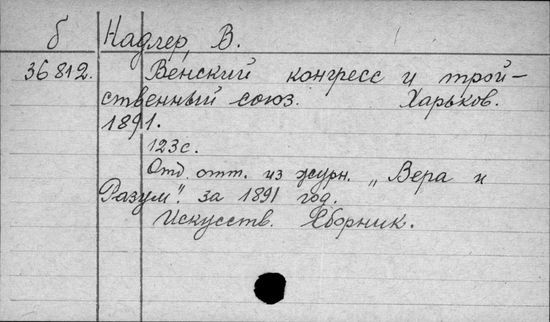 б Надлер, В.
36812. Венский конгресс и трой-
ственный союз. Харьков.
1891.
123с.
Отд. отт. из журн. „Вера и
Разум". за 1891 год.
Искусств. Сборник.